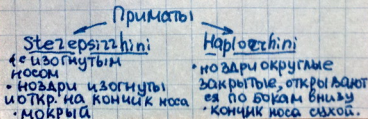 Приматы
Stezepsizzhini
Haplozzhini
« с изогнутым
носом
• ноздри изогнуты
и откр. на кончик носа
• мокрый
• ноздри округлые
закрытые, открывают
ся по бокам внизу
• кончик носа сухой.